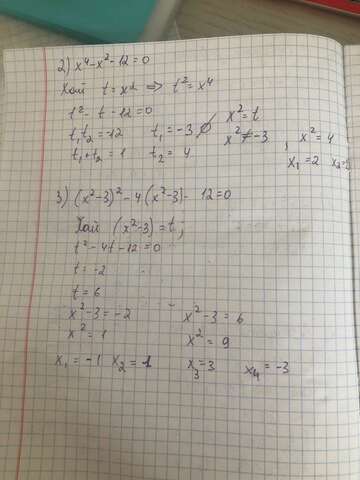 2) x⁴-x²-12=0
Хай t=x² => t²=x⁴
t²-t-12=0
t₁t₂=-12 t₁=-3 ∅ x²=t
t₁+t₂=1 t₂=4 x²≠-3, x²=4
x₁=2
3) (x²-3)²-4(x²-3)-12=0
Хай (x²-3)=t;
t²-4t-12=0
t=-2
t=6
x²-3=-2 x²-3=6
x²=1 x²=9
x₁=-1 x₂=1 x₃=3 x₄=-3